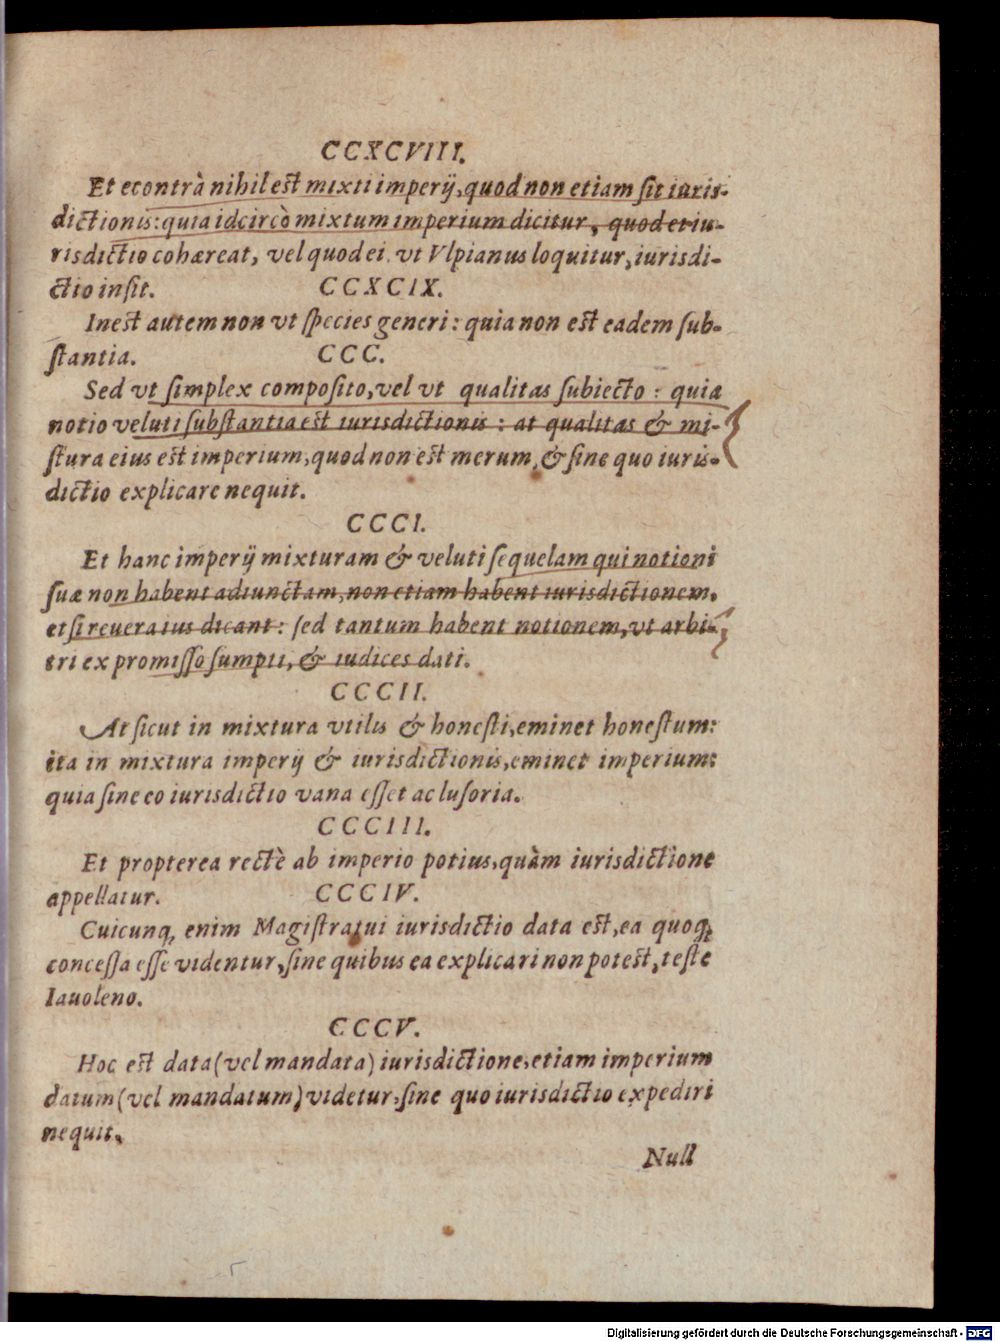 CCXCVIII.
Et econtrà nihil est mixti imperij, quod non etiam sit iuris-
dictionis: quia idcircò mixtum imperium dicitur, quod et iu-
risdictio cohæreat, vel quod ei, vt Vlpianus loquitur, iurisdi-
ctio insit. CCXCIX.
Inest autem non vt species generi: quia non est eadem sub-
stantia. CCC.
Sed vt simplex composito, vel vt qualitas subiecto: quia
notio veluti substantia est iurisdictionis: at qualitas & mi-
stura eius est imperium, quod non est merum, & sine quo iuris-
dictio explicare nequit.
CCCI.
Et hanc imperij mixturam & veluti sequelam qui notioni
suæ non habent adiunctam, non etiam habent iurisdictionem,
etsi reuera ius dicant: sed tantum habent notionem, vt arbi-
tri ex promisso sumpti, & iudices dati.
CCCII.
At sicut in mixtura vtilis & honesti, eminet honestum:
ita in mixtura imperij & iurisdictionis, eminet imperium:
quia sine eo iurisdictio vana esset ac lusoria.
CCCIII.
Et propterea rectè ab imperio potius, quàm iurisdictione
appellatur. CCCIV.
Cuicunq; enim Magistratui iurisdictio data est, ea quoq;
concessa esse videntur, sine quibus ea explicari non potest, teste
Iauoleno.
CCCV.
Hoc est data (vel mandata) iurisdictione, etiam imperium
datum (vel mandatum) videtur, sine quo iurisdictio expediri
nequit.
Null
Digitalisierung gefördert durch die Deutsche Forschungsgemeinschaft - DFG